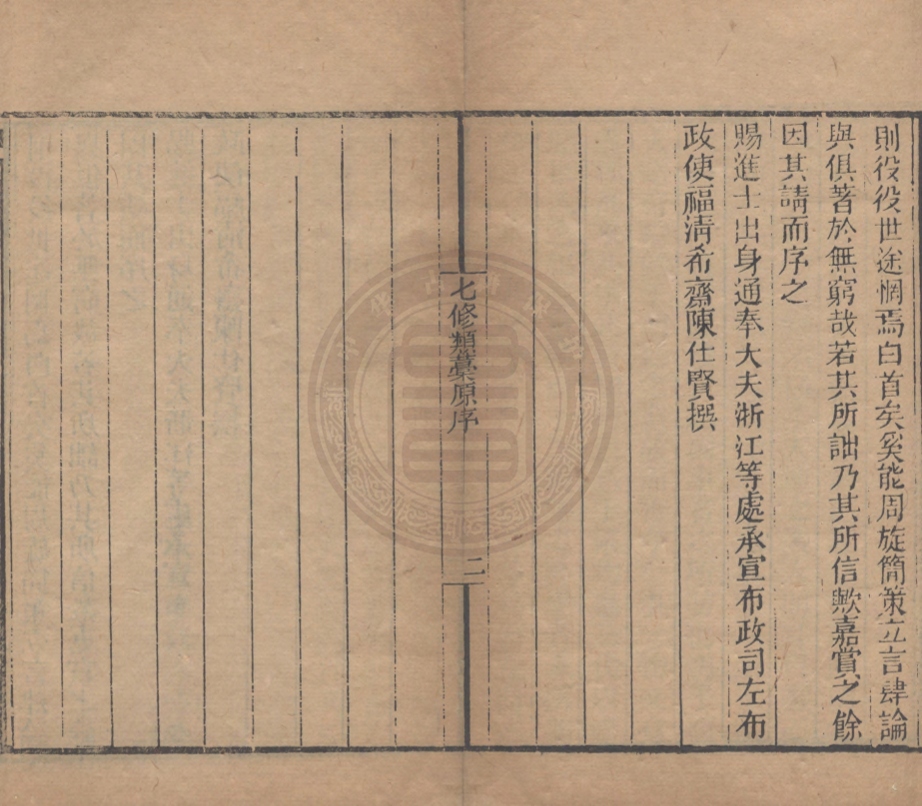 則役役世途惘焉白首矣奚能周旋簡策立言肆論
與俱著於無窮哉若其所詘乃其所信歟嘉賞之餘
因其請而序之
賜進士出身通奉大夫浙江等處承宣布政司左布
政使福清希齋陳仕賢撰
七修類藁原序
二